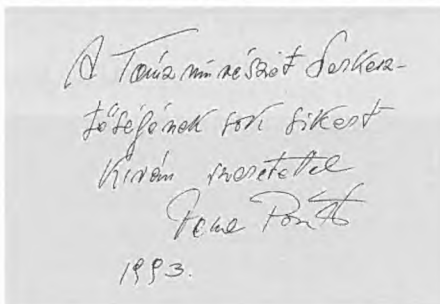 A Táncművészet Szerkesz-
tőségének sok sikert
kíván szeretettel
1993.